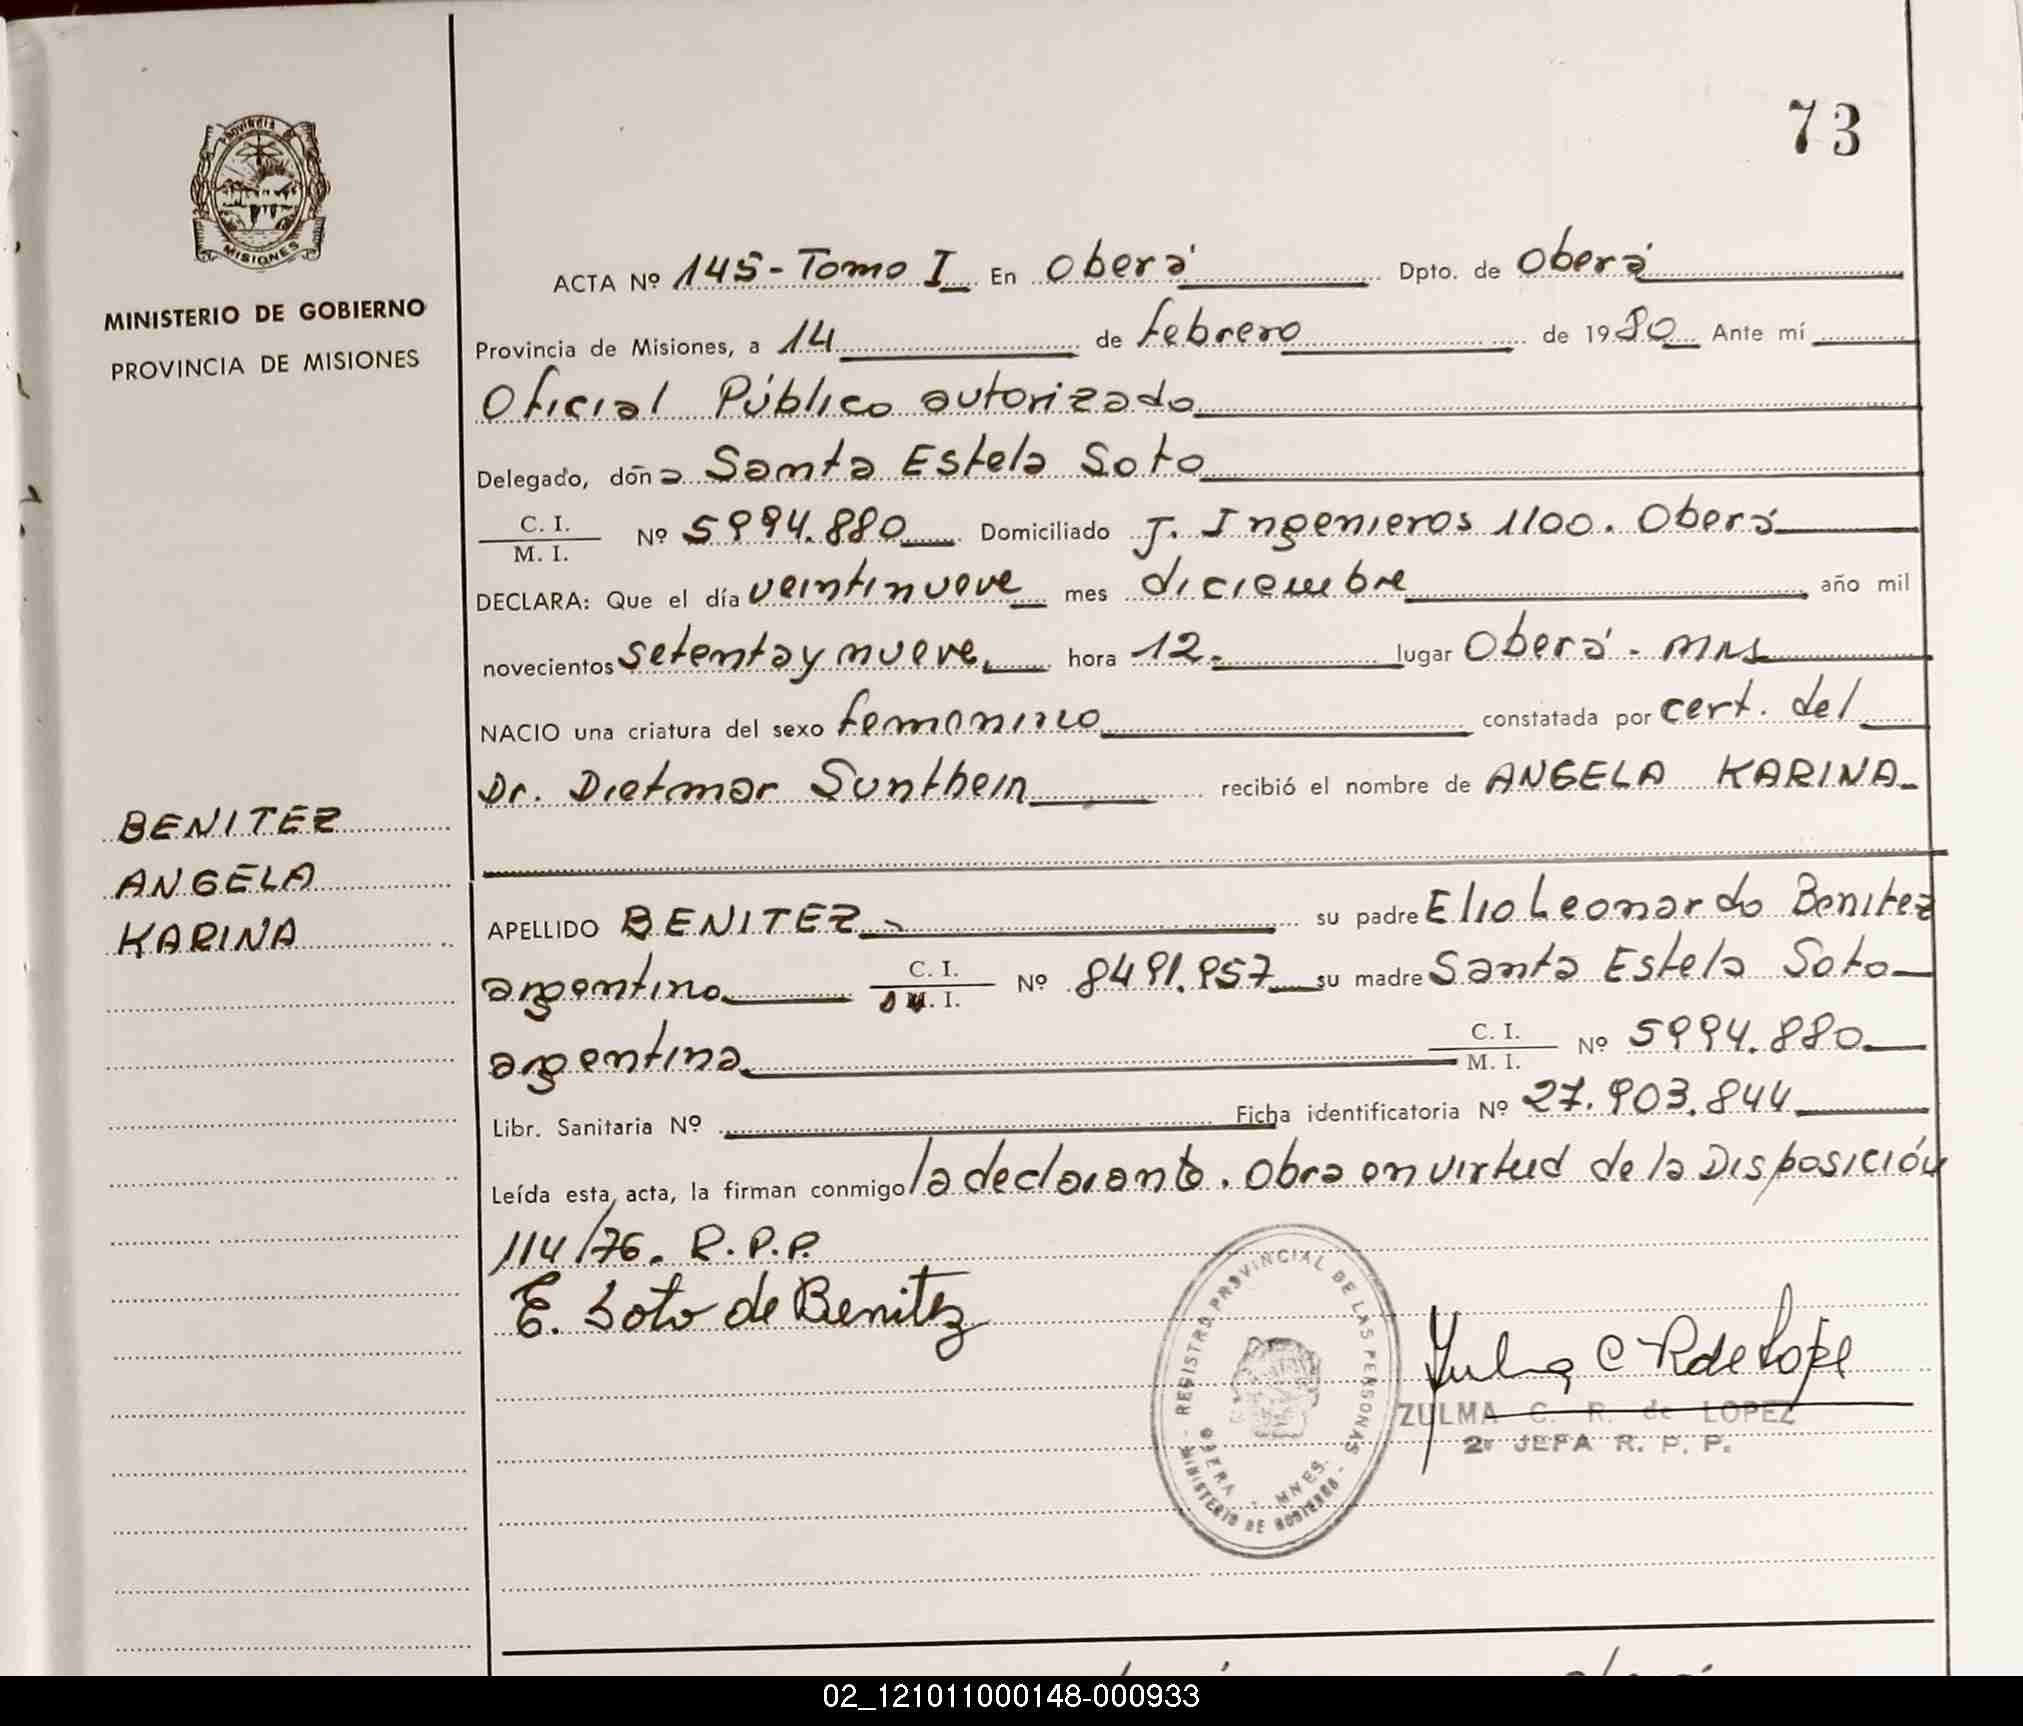 73
Provincia de
MISIONES
MINISTERIO DE GOBIERNO
PROVINCIA DE MISIONES
BENITEZ
ANGELA
KARINA
ACTA Nº 145 - Tomo I En Oberá Dpto. de Oberá
Provincia de Misiones, a 14 de febrero de 1980 Ante mí
Oficial Público autorizado
Delegado, doña Santa Estela Soto
C. I.
M. I. Nº 5994.880 Domiciliado J. Ingenieros 1100. Oberá
DECLARA: Que el día veintinueve mes diciembre año mil
novecientos setenta y nueve, hora 12. lugar Oberá - mns
NACIO una criatura del sexo femenino constatada por cert. del
Dr. Dietmar Sunthein recibió el nombre de ANGELA KARINA
APELLIDO BENITEZ su padre Elio Leonardo Benitez
argentino C. I.
M. I. Nº 8491.957 su madre Santa Estela Soto
argentina C. I.
M. I. Nº 5994.880
Libr. Sanitaria Nº Ficha identificatoria Nº 27.903.844
Leída esta acta, la firman conmigo la declarante. Obra en virtud de la Disposición
114/76. R.P.P.
E. Soto de Benitez
REGISTRO PROVINCIAL DE LAS PERSONAS
OBERA - MNES.
MINISTERIO DE GOBIERNO
Zulma C R de Lopez
ZULMA C. R. de LOPEZ
2º JEFA R. P. P.
02_121011000148-000933